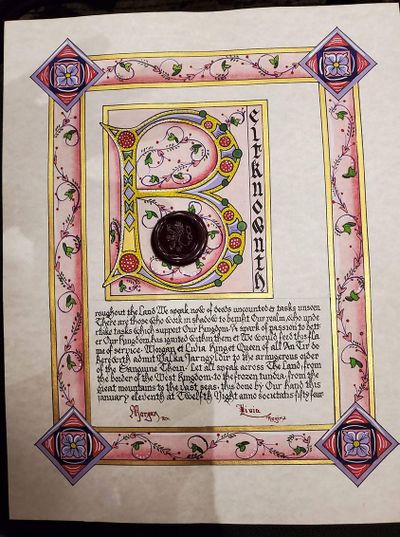 Beitknownth
roughout the Land We speak now of deeds uncounted et tasks unseen
There are those who work in shadow to benifit Our realm, who unde
rtake tasks which support Our Kingdom. A spark of passion to bett
er Our Kingdom has ignited within them et We would feed this fla
me of service. Morgan et Livia King et Queen of all An Tir do
herewith admit Valka Jarngyldir to the armgerous order
of the Sanguine Thorn. Let all speak across The Land, from
the border of the West Kingdom, to the frozen tundra, from the
great mountains to the vast seas, this done by Our Hand this
january eleventh at Twelfth Night anno societatis fifty four
Morgan Livia